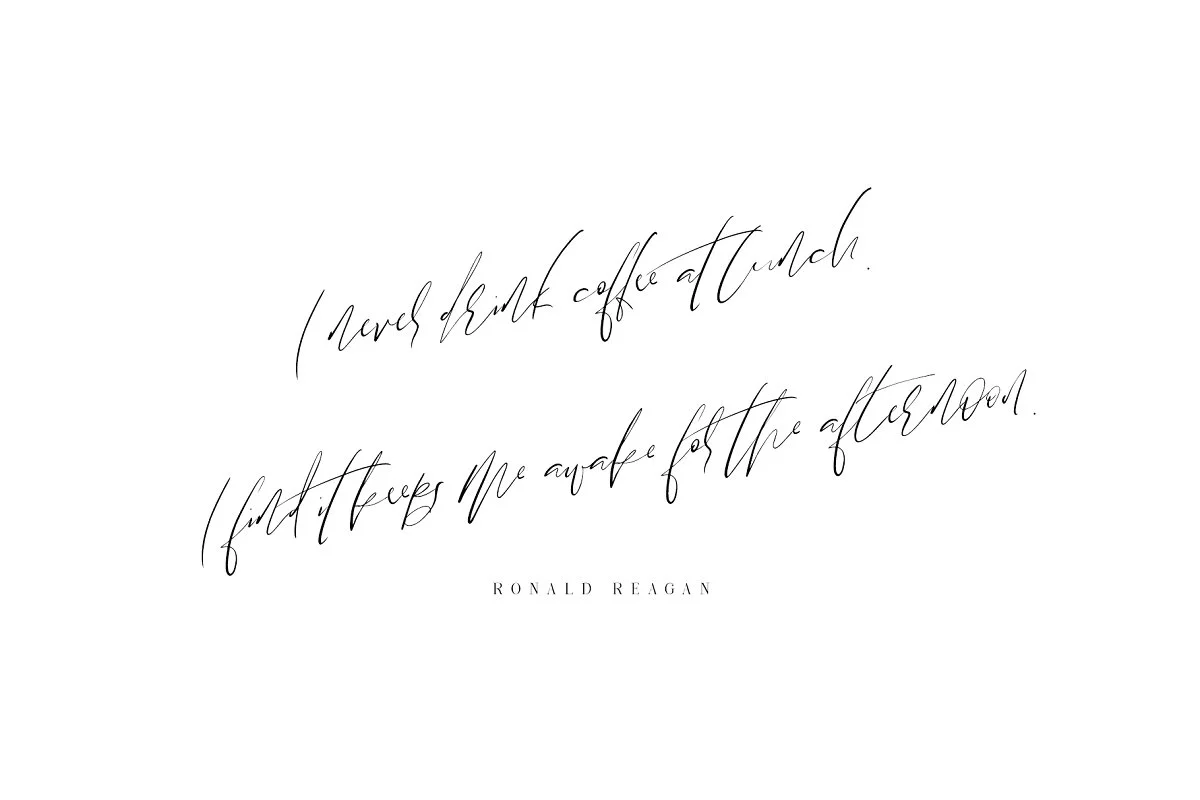 I never drink coffee at lunch.
I find it keeps me awake for the afternoon.
RONALD REAGAN